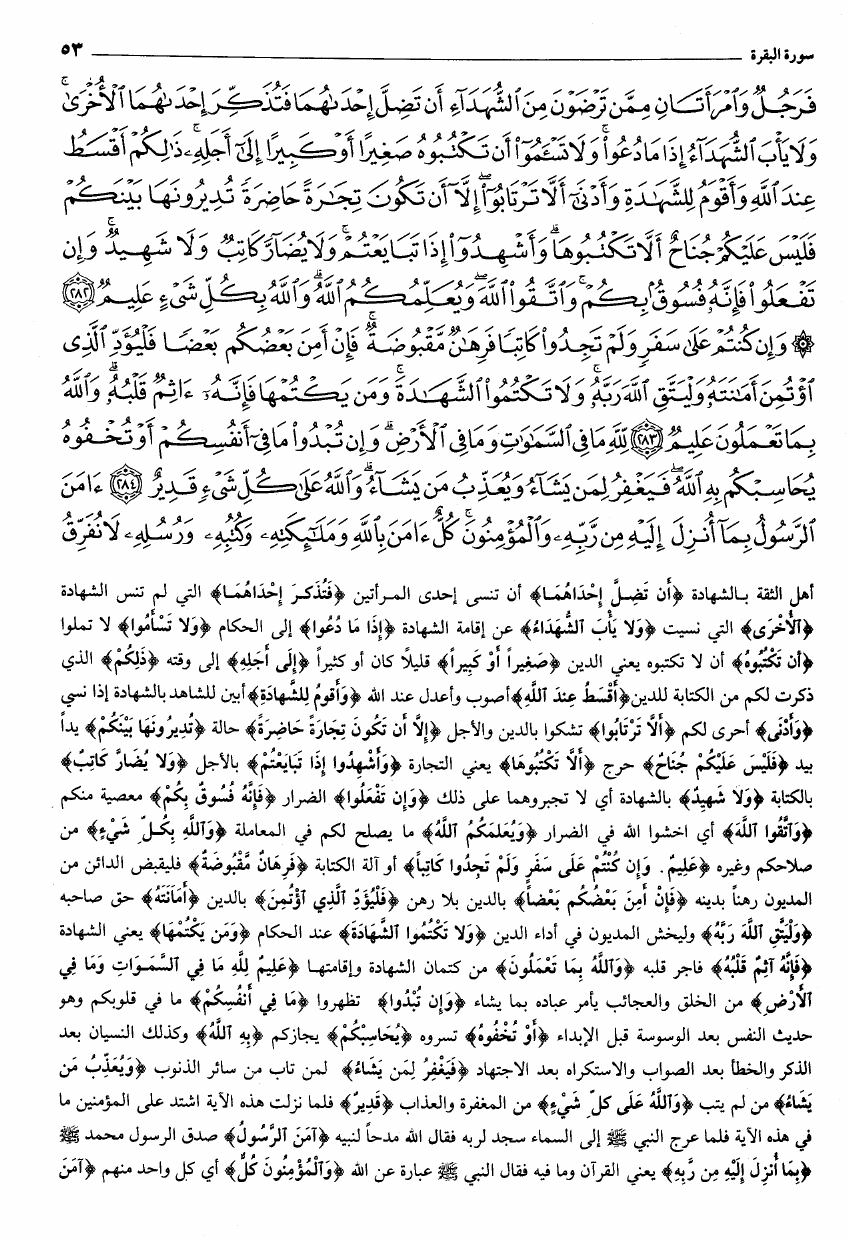 سورة البقرة ٥٣
فَرَجُلٌ وَٱمْرَأَتَانِ مِمَّن تَرْضَوْنَ مِنَ ٱلشُّهَدَآءِ أَن تَضِلَّ إِحْدَىٰهُمَا فَتُذَكِّرَ إِحْدَىٰهُمَا ٱلْأُخْرَىٰ
وَلَا يَأْبَ ٱلشُّهَدَآءُ إِذَا مَا دُعُوا۟ وَلَا تَسْـَٔمُوٓا۟ أَن تَكْتُبُوهُ صَغِيرًا أَوْ كَبِيرًا إِلَىٰٓ أَجَلِهِۦ ذَٰلِكُمْ أَقْسَطُ
عِندَ ٱللَّهِ وَأَقْوَمُ لِلشَّهَٰدَةِ وَأَدْنَىٰٓ أَلَّا تَرْتَابُوٓا۟ إِلَّآ أَن تَكُونَ تِجَٰرَةً حَاضِرَةً تُدِيرُونَهَا بَيْنَكُمْ
فَلَيْسَ عَلَيْكُمْ جُنَاحٌ أَلَّا تَكْتُبُوهَا وَأَشْهِدُوٓا۟ إِذَا تَبَايَعْتُمْ وَلَا يُضَآرَّ كَاتِبٌ وَلَا شَهِيدٌ وَإِن
تَفْعَلُوا۟ فَإِنَّهُۥ فُسُوقٌۢ بِكُمْ وَٱتَّقُوا۟ ٱللَّهَ وَيُعَلِّمُكُمُ ٱللَّهُ وَٱللَّهُ بِكُلِّ شَىْءٍ عَلِيمٌ ٢٨٢
۞ وَإِن كُنتُمْ عَلَىٰ سَفَرٍ وَلَمْ تَجِدُوا۟ كَاتِبًا فَرِهَٰنٌ مَّقْبُوضَةٌ فَإِنْ أَمِنَ بَعْضُكُم بَعْضًا فَلْيُؤَدِّ ٱلَّذِى
ٱؤْتُمِنَ أَمَٰنَتَهُۥ وَلْيَتَّقِ ٱللَّهَ رَبَّهُۥ وَلَا تَكْتُمُوا۟ ٱلشَّهَٰدَةَ وَمَن يَكْتُمْهَا فَإِنَّهُۥٓ ءَاثِمٌ قَلْبُهُۥ وَٱللَّهُ
بِمَا تَعْمَلُونَ عَلِيمٌ ٢٨٣ لِّلَّهِ مَا فِى ٱلسَّمَٰوَٰتِ وَمَا فِى ٱلْأَرْضِ وَإِن تُبْدُوا۟ مَا فِىٓ أَنفُسِكُمْ أَوْ تُخْفُوهُ
يُحَاسِبْكُم بِهِ ٱللَّهُ فَيَغْفِرُ لِمَن يَشَآءُ وَيُعَذِّبُ مَن يَشَآءُ وَٱللَّهُ عَلَىٰ كُلِّ شَىْءٍ قَدِيرٌ ٢٨٤ ءَامَنَ
ٱلرَّسُولُ بِمَآ أُنزِلَ إِلَيْهِ مِن رَّبِّهِۦ وَٱلْمُؤْمِنُونَ كُلٌّ ءَامَنَ بِٱللَّهِ وَمَلَٰٓئِكَتِهِۦ وَكُتُبِهِۦ وَرُسُلِهِۦ لَا نُفَرِّقُ
أهل الثقة بالشهادة ﴿أَن تَضِلَّ إِحْدَاهُمَا﴾ أن تنسى إحدى المرأتين ﴿فَتُذَكرَ إِحْدَاهُمَا﴾ التي لم تنس الشهادة
﴿ٱلْأُخْرَى﴾ التي نسيت ﴿وَلَا يَأْبَ ٱلشُّهَدَاءُ﴾ عن إقامة الشهادة ﴿إِذَا مَا دُعُوا﴾ إلى الحكام ﴿وَلَا تَسْأَمُوا﴾ لا تملوا
﴿أَن تَكْتُبُوهُ﴾ أن لا تكتبوه يعني الدين ﴿صَغِيراً أَوْ كَبِيراً﴾ قليلاً كان أو كثيراً ﴿إِلَى أَجَلِهِ﴾ إلى وقته ﴿ذَلِكُمْ﴾ الذي
ذكرت لكم من الكتابة للدين ﴿أَقْسَطُ عِنْدَ ٱللَّهِ﴾ أصوب وأعدل عند الله ﴿وَأَقومُ لِلشَّهَادَةِ﴾ أبين للشاهد بالشهادة إذا نسي
﴿وَأَدْنَى﴾ أحرى لكم ﴿أَلَّا تَرْتَابُوا﴾ تشكوا بالدين والأجل ﴿إِلَّا أَن تَكُونَ تِجَارَةً حَاضِرَةً﴾ حالة ﴿تُدِيرُونَهَا بَيْنَكُمْ﴾ يداً
بيد ﴿فَلَيْسَ عَلَيْكُمْ جُنَاحٌ﴾ حرج ﴿أَلَّا تَكْتُبُوهَا﴾ يعني التجارة ﴿وَأَشْهِدُوا إِذَا تَبَايَعْتُمْ﴾ بالأجل ﴿وَلَا يُضَارَّ كَاتِبٌ﴾
بالكتابة ﴿وَلَا شَهِيدٌ﴾ بالشهادة أي لا تجبروهما على ذلك ﴿وَإِن تَفْعَلُوا﴾ الضرار ﴿فَإِنَّهُ فُسُوقٌ بِكُمْ﴾ معصية منكم
﴿وَٱتَّقُوا ٱللَّهَ﴾ أي اخشوا الله في الضرار ﴿وَيُعَلمَكُمُ ٱللَّهُ﴾ ما يصلح لكم في المعاملة ﴿وَٱللَّهِ بِكُلّ شَيْءٍ﴾ من
صلاحكم وغيره ﴿عَلِيمٌ. وَإِن كُنْتُمْ عَلَى سَفَرٍ وَلَمْ تَجِدُوا كَاتِباً﴾ أو آلة الكتابة ﴿فَرِهَانٌ مَقْبُوضَةٌ﴾ فليقبض الدائن من
المديون رهناً بدينه ﴿فَإِنْ أَمِنَ بَعْضُكُم بَعْضاً﴾ بالدين بلا رهن ﴿فَلْيُؤَدِّ ٱلَّذِي ٱؤْتُمِنَ﴾ بالدين ﴿أَمَانَتَهُ﴾ حق صاحبه
﴿وَلْيَتَّقِ ٱللَّهَ رَبَّهُ﴾ وليخش المديون في أداء الدين ﴿وَلَا تَكْتُمُوا ٱلشَّهَادَةَ﴾ عند الحكام ﴿وَمَن يَكْتُمْهَا﴾ يعني الشهادة
﴿فَإِنَّهُ آثِمٌ قَلْبُهُ﴾ فاجر قلبه ﴿وَٱللَّهُ بِمَا تَعْمَلُونَ﴾ من كتمان الشهادة وإقامتها ﴿عَلِيمٌ لِلَّهِ مَا فِي ٱلسَّمَوَاتِ وَمَا فِي
ٱلْأَرْضِ﴾ من الخلق والعجائب يأمر عباده بما يشاء ﴿وَإِن تُبْدُوا﴾ تظهروا ﴿مَا فِي أَنْفُسِكُمْ﴾ ما في قلوبكم وهو
حديث النفس بعد الوسوسة قبل الإبداء ﴿أَوْ تُخْفُوهُ﴾ تسروه ﴿يُحَاسِبْكُمْ﴾ يجازكم ﴿بِهِ ٱللَّهُ﴾ وكذلك النسيان بعد
الذكر والخطأ بعد الصواب والاستكراه بعد الاجتهاد ﴿فَيَغْفِرُ لِمَن يَشَاءُ﴾ لمن تاب من سائر الذنوب ﴿وَيُعَذِّبُ مَن
يَشَاءُ﴾ من لم يتب ﴿وَٱللَّهُ عَلَى كلّ شَيْءٍ﴾ من المغفرة والعذاب ﴿قَدِيرٌ﴾ فلما نزلت هذه الآية اشتد على المؤمنين ما
في هذه الآية فلما عرج النبي ﷺ إلى السماء سجد لربه فقال الله مدحاً لنبيه ﴿آمَنَ ٱلرَّسُولُ﴾ صدق الرسول محمد ﷺ
﴿بِمَا أُنْزِلَ إِلَيْهِ مِن رَّبِهِ﴾ يعني القرآن وما فيه فقال النبي ﷺ عبارة عن الله ﴿وَٱلْمُؤْمِنُونَ كُلٌّ﴾ أي كل واحد منهم ﴿آمَنَ